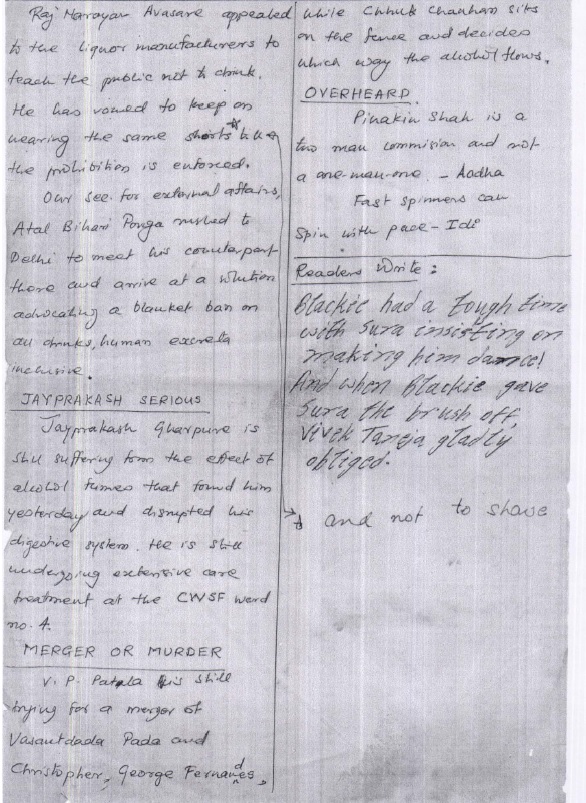 Raj Narayan Avasare appealed
to the liquor manufacturers to
teach the public not to drink.
He has vowed to keep on
wearing the same shorts * till
the prohibition is enforced.
Our sec. for external affairs,
Atal Bihari Ponga rushed to
Delhi to meet his counterpart
there and arrive at a solution
advocating a blanket ban on
all drinks, human excreta
inclusive.
JAYPRAKASH SERIOUS
Jayprakash Gharpure is
still suffering form the effect of
alcohol fumes that found him
yesterday and disrupted his
digestive system. He is still
undergoing extensive care
treatment at the CWSF ward
no. 4.
MERGER OR MURDER
V. P. Patala is still
trying for a merger of
Vasantdada Pada and
Christopher, George Fernandes,
while Chhuk Chauhan sits
on the fence and decides
which way the alcohol flows.
OVERHEARD
Pinakin Shah is a
two man commision and not
a one-man-one. - Aadha
Fast spinners can
spin with pace - Idi
Readers Write:
Blackie had a tough time
with Sura insisting on
making him dance!
And when Blackie gave
Sura the brush off,
Vivek Taneja gladly
obliged.
* and not to shave